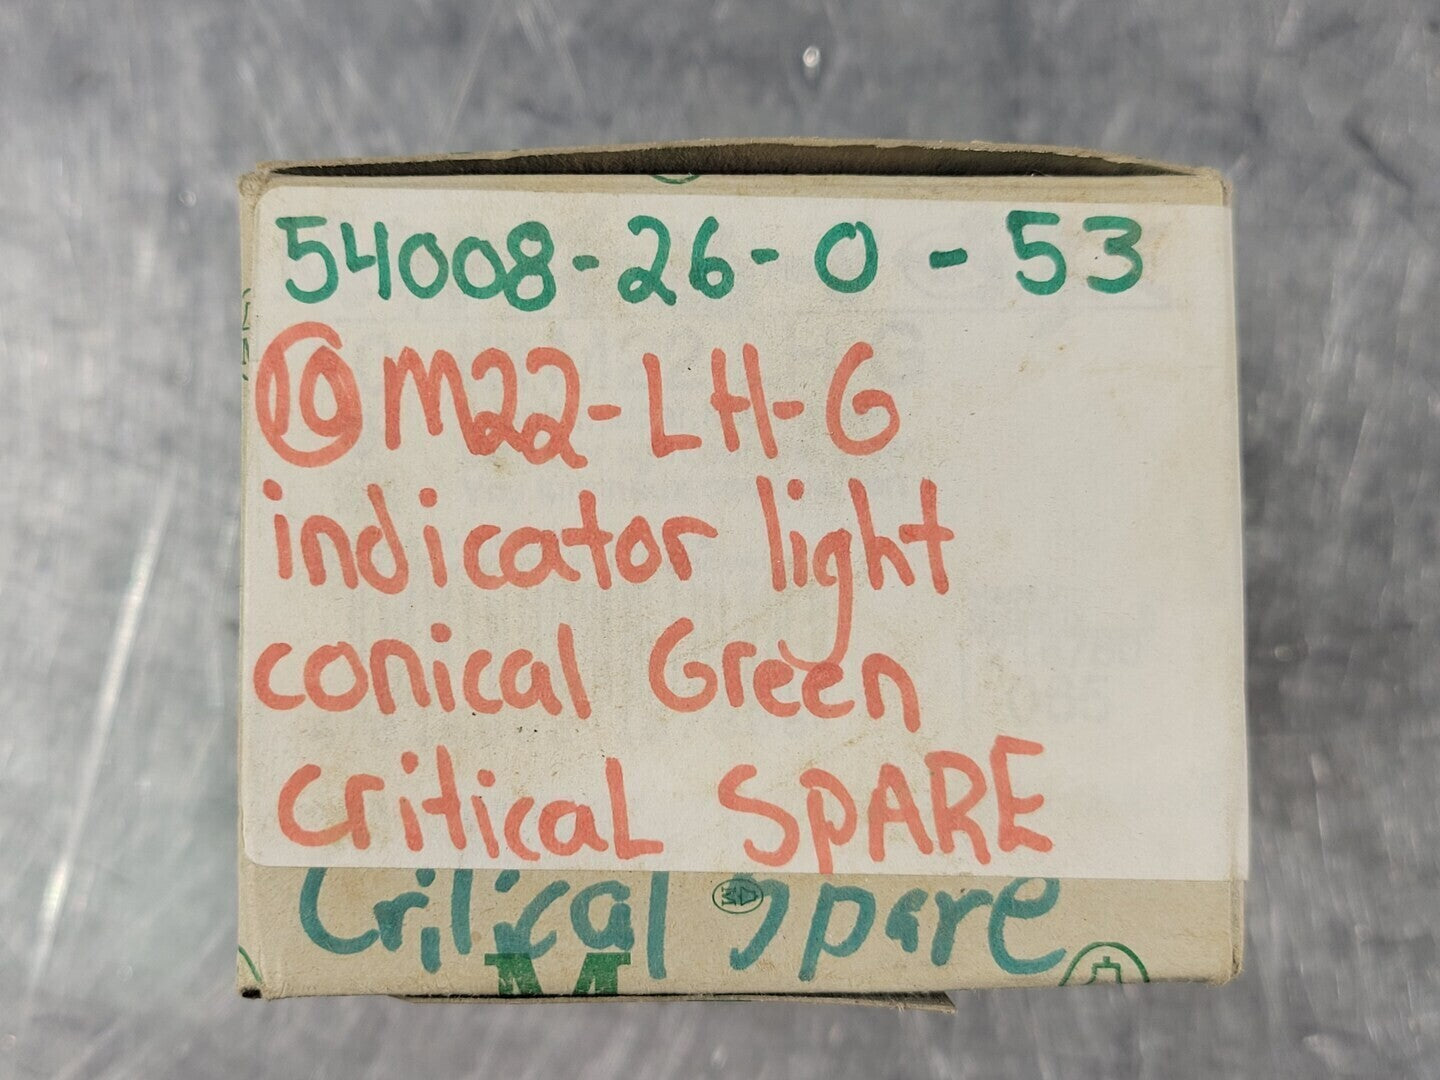 54008-26-0-53
10 M22-LH-G
indicator light
conical Green
criticaL SPARE
Critical Spare
M